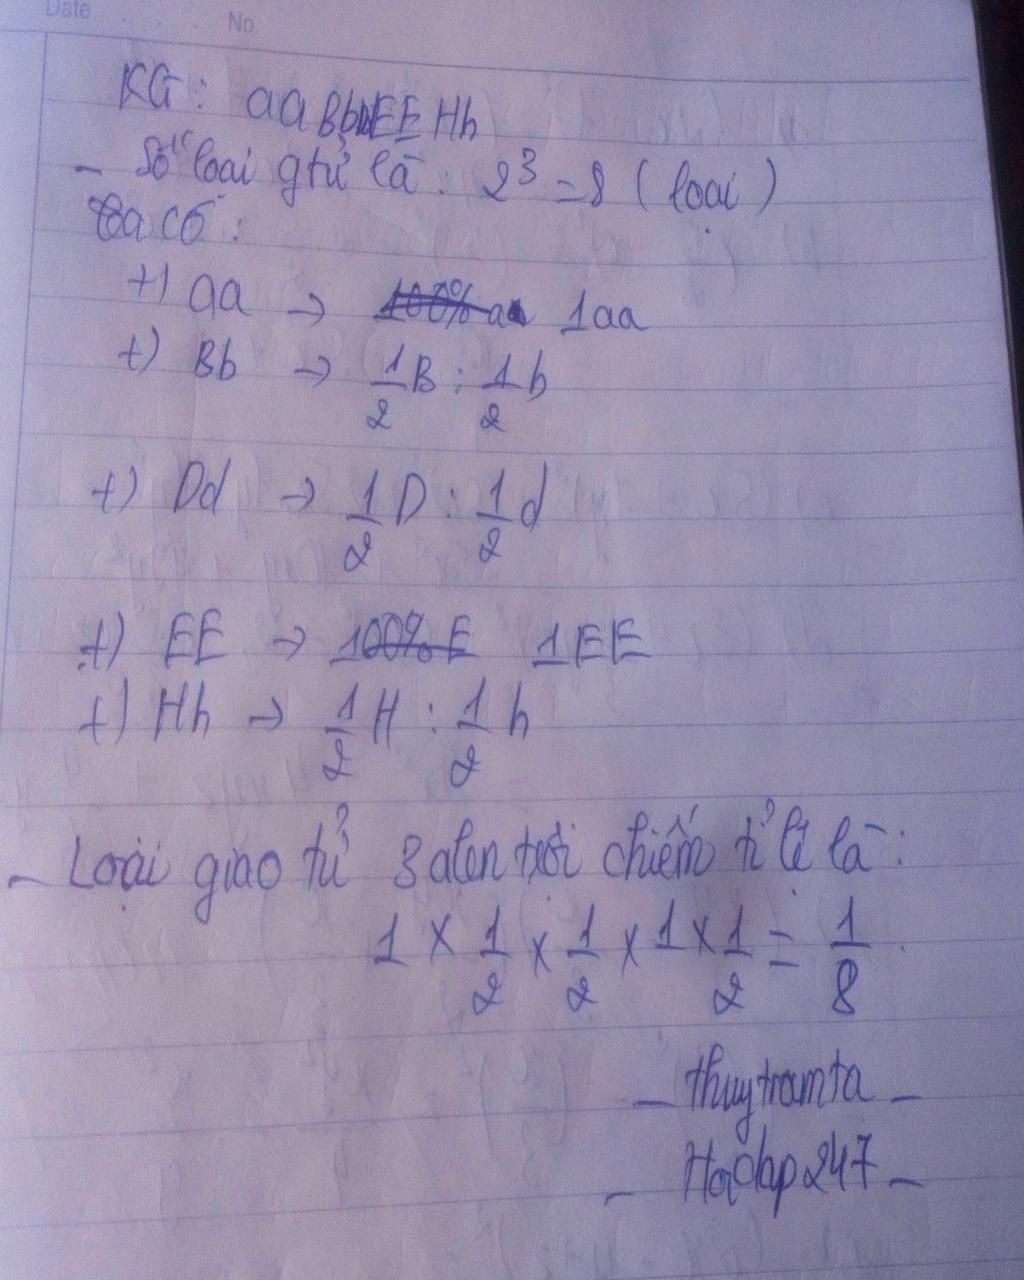 Date No.
KG: aaBbDdEEHh
- Số loại gtử là: 2³ = 8 (loại)
Ta có:
+) aa → 100% a 1aa
+) Bb → 1/2 B : 1/2 b
+) Dd → 1/2 D : 1/2 d
+) EE → 100% E 1EE
+) Hh → 1/2 H : 1/2 h
- Loại giao tử 3 alen trội chiếm tỉ lệ là:
1 × 1/2 × 1/2 × 1 × 1/2 = 1/8
- thuytramta -
- Hoidap247 -